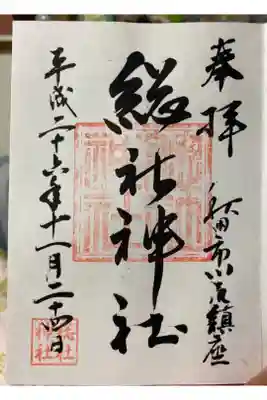 奉拝
秋田市川尻鎮座
総社神社
平成二十六年十一月二十四日